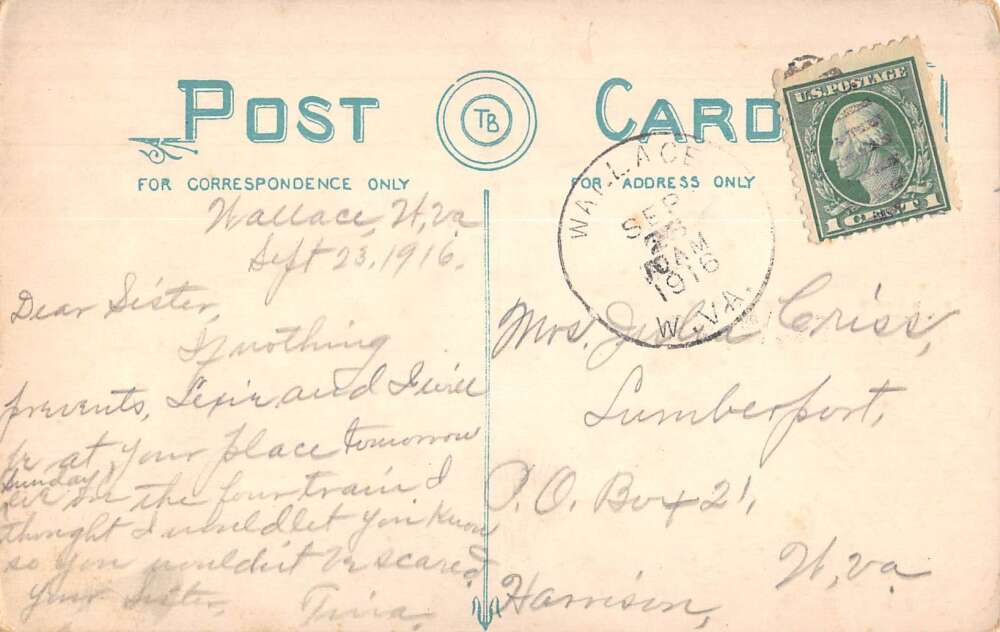 POST CARD
TB
FOR CORRESPONDENCE ONLY
FOR ADDRESS ONLY
U.S. POSTAGE
1 CENT 1
WALLACE
SEP
AM
1916
W. VA.
Wallace, W, Va
Sept 23, 1916.
Dear Sister,
If nothing
prevents, Lexie and I will
be at your place tomorrow
Sunday
eve on the four train. I
thought I would let you know
so you wouldn't be scared
your Sister,
Mrs. Julia Criss,
Lumberport,
P.O. Box 21,
Harrison, W, Va